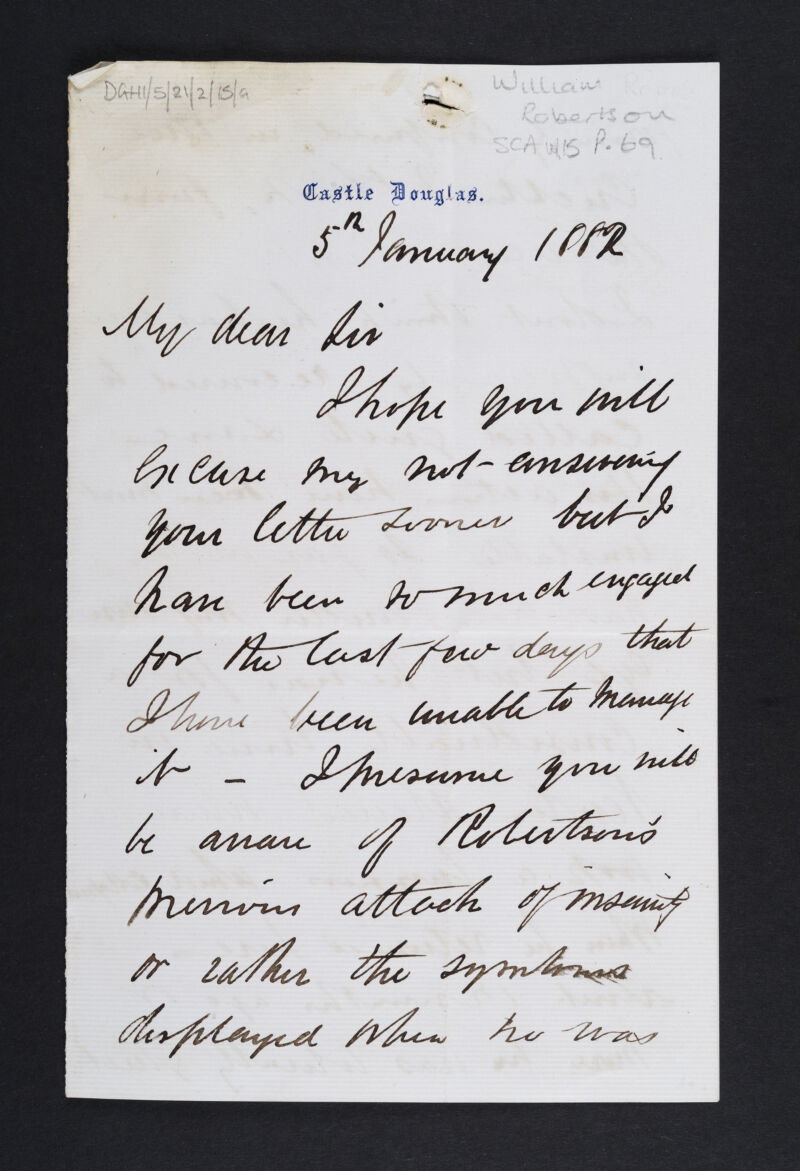 DGH1/5/21/2/15/a
William
Robertson
SCA W15 P.69
Castle Douglas.
5th January 1882
My dear Sir
I hope you will
excuse my not answering
your letter sooner but I
have been so much engaged
for the last few days that
I have been unable to manage
it – I presume you will
be aware of Robertson's
previous attack of insanity
or rather the symptoms
displayed when he was